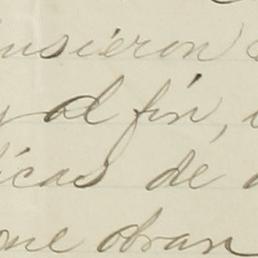 usieron
y al fin,
icas de
que obran